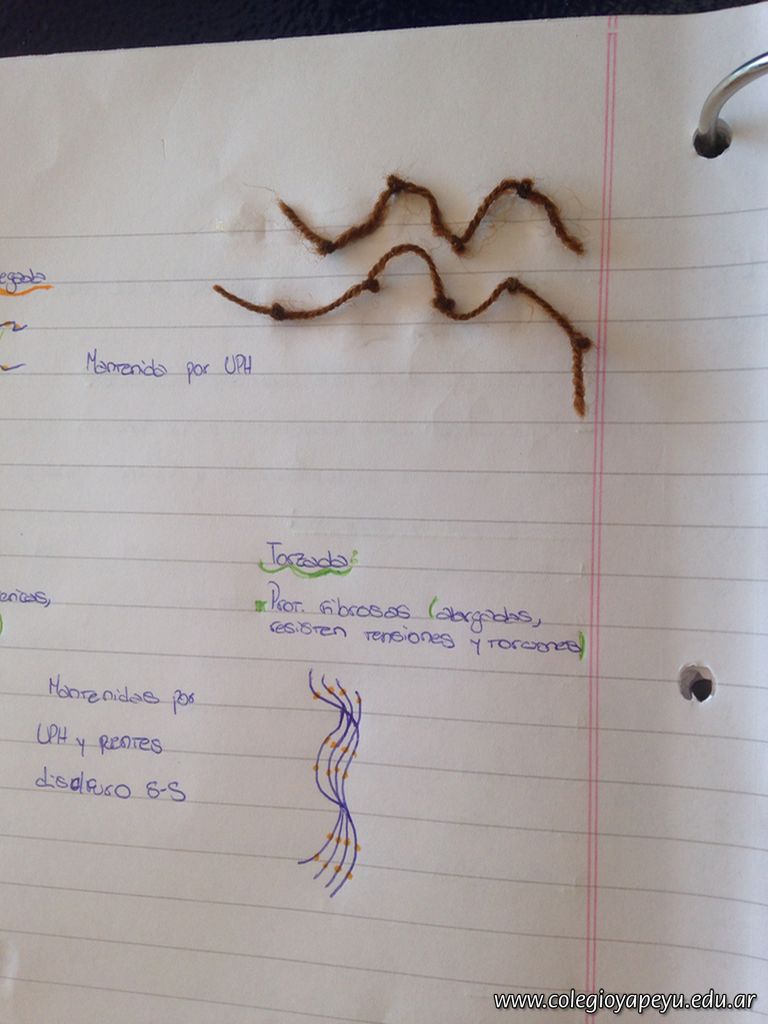 egada
Mantenida por UPH
Torzada:
Prot. fibrosas (alargadas,
resisten tensiones y torciones)
Mantenidas por
UPH y pentes
disulfuro S-S
www.colegioyapeyu.edu.ar